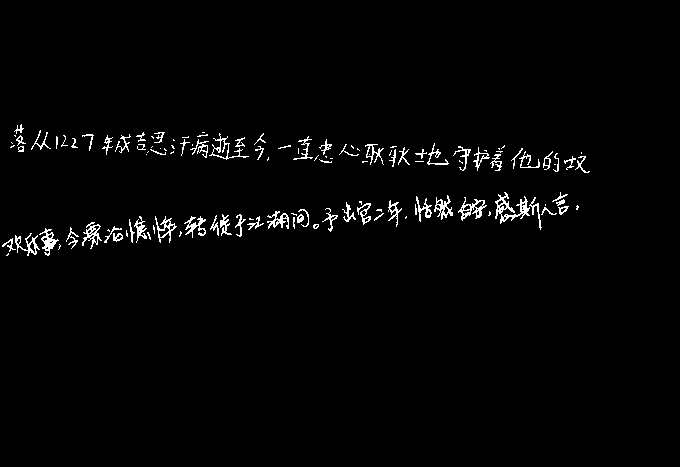 落从1227年成吉思汗病逝至今,一直忠心耿耿地守护着他的坟
欢乐事,今漂沦憔悴,转徙于江湖间。予出官二年,恬然自安,感斯人言,